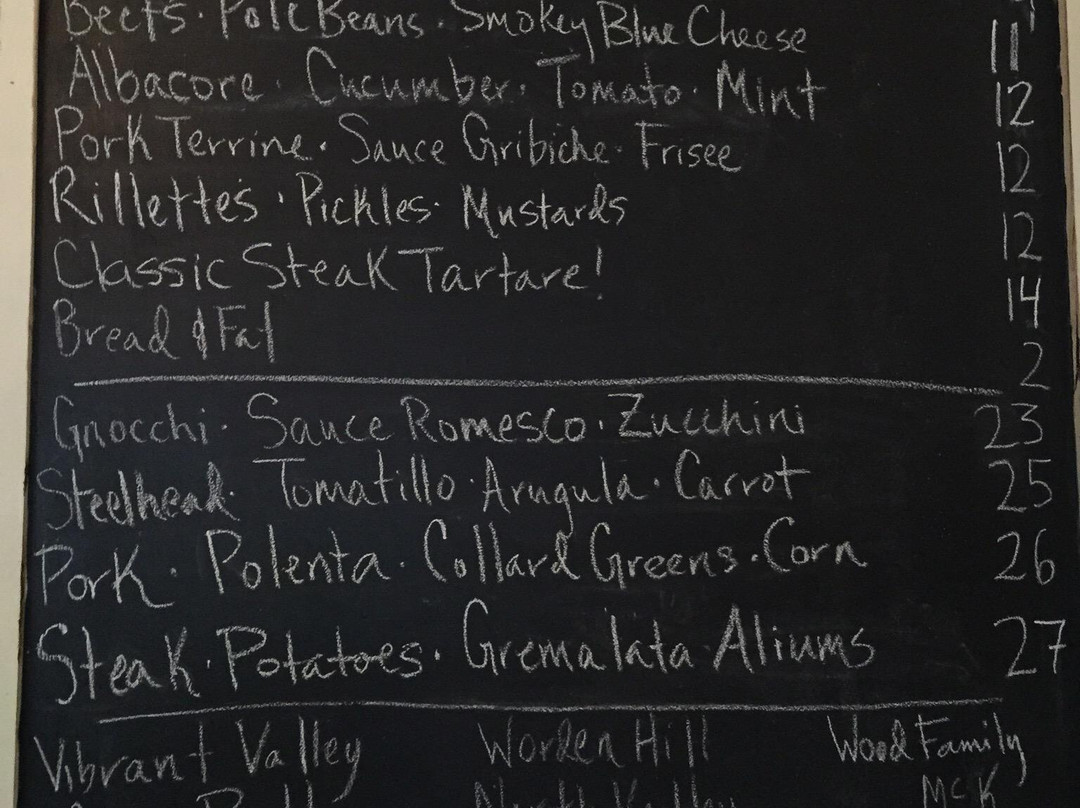 Beets · Pole Beans · Smokey Blue Cheese 11
Albacore · Cucumber · Tomato · Mint 12
Pork Terrine · Sauce Gribiche · Frisee 12
Rillettes · Pickles · Mustards 12
Classic Steak Tartare! 14
Bread & Fat 2
Gnocchi · Sauce Romesco · Zucchini 23
Steelhead · Tomatillo · Arugula · Carrot 25
Pork · Polenta · Collard Greens · Corn 26
Steak · Potatoes · Gremalata Aliums 27
Vibrant Valley Worden Hill Wood Family
McK